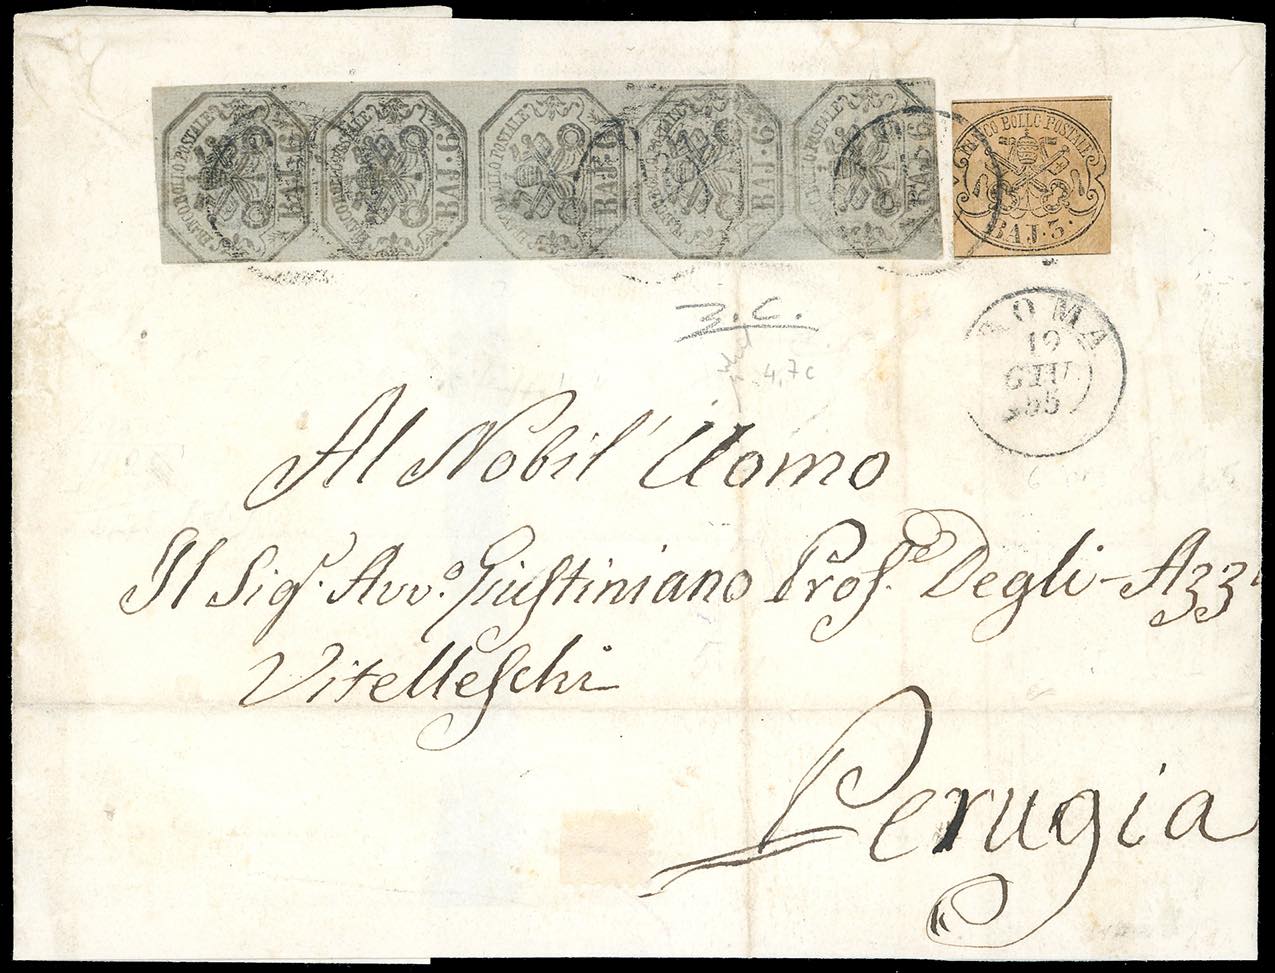 FRANCO BOLLO POSTALE BAJ·6 FRANCO BOLLO POSTALE BAJ·6 FRANCO BOLLO POSTALE BAJ·6 FRANCO BOLLO POSTALE BAJ·6 FRANCO BOLLO POSTALE BAJ·6
FRANCO BOLLO POSTALE
BAJ·3·
ROMA
19
GIU
55
4,7c
Al Nobil' Uomo
Il Sigr. Avvo. Giustiniano Profe. Degli-Azzi
Vitelleschi
Perugia